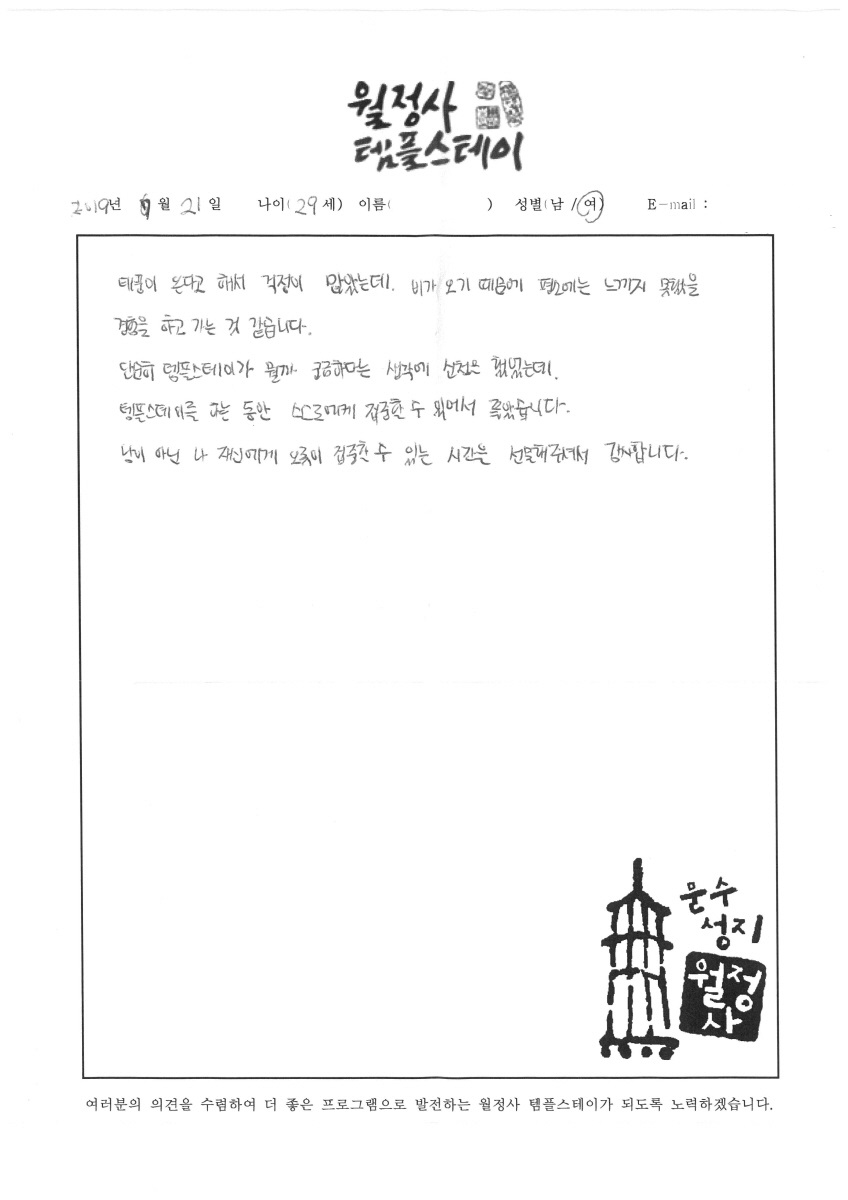 월정사
템플스테이
2019년 9월 21일 나이(29세) 이름( ) 성별(남/여) E-mail :
태풍이 온다고 해서 걱정이 많았는데. 비가 오기 때문에 평소에는 느끼지 못했을
경험을 하고 가는 것 같습니다.
단순히 템플스테이가 뭘까 궁금하다는 생각에 신청은 했었는데.
템플스테이를 하는 동안 스스로에게 집중할 수 있어서 좋았습니다.
남이 아닌 나 자신에게 오롯이 집중할 수 있는 시간을 선물해주셔서 감사합니다.
문수
성지
월정
사
여러분의 의견을 수렴하여 더 좋은 프로그램으로 발전하는 월정사 템플스테이가 되도록 노력하겠습니다.